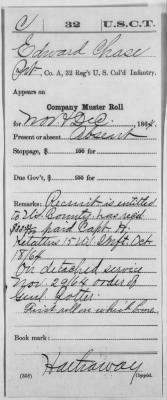 C 32 U.S.C.T.
Edward Chase
Pvt, Co. A, 32 Reg't U. S. Col'd Infantry.
Appears on
Company Muster Roll
for Nov & Dec, 186
Present or absent Absent
Stoppage, $ 100 for
Due Gov't, $ 100 for
Remarks: Recruit is entitled
to U.S. Bounty has rec'd
paid Capt. H.
Dist. Oct
18/64
On detached service
Nov. 29/64 order of
Genl. Potter.
First roll on which borne
Book mark:
Hathaway
(358) Copyist.